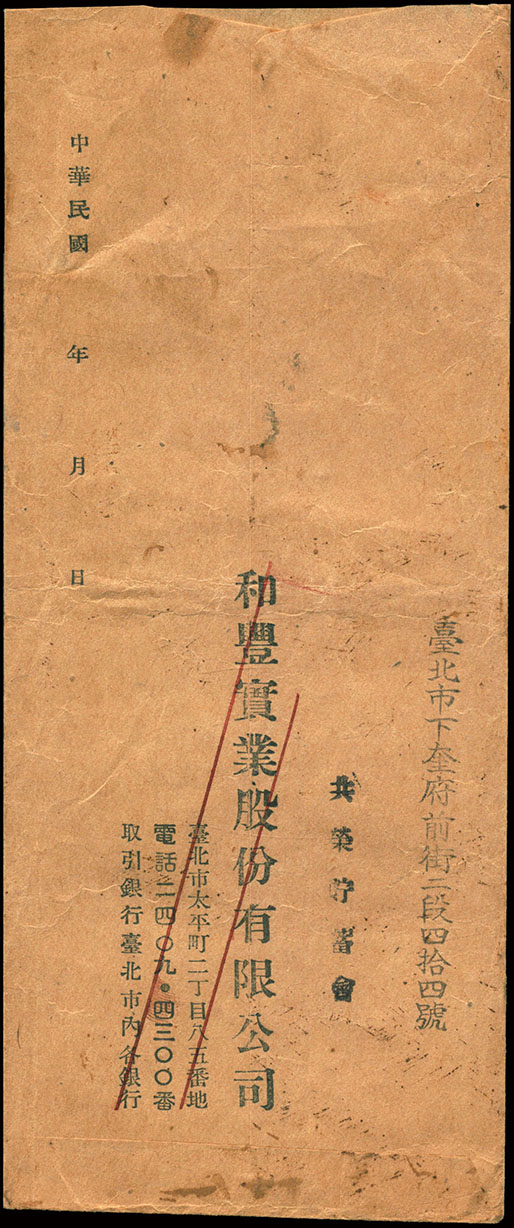 臺北市下奎府前街一段四拾四號
共榮貯蓄會
和豐實業股份有限公司
臺北市太平町二丁目八五番地
電話二四〇九・四三〇〇番
取引銀行臺北市內各銀行
中華民國 年 月 日